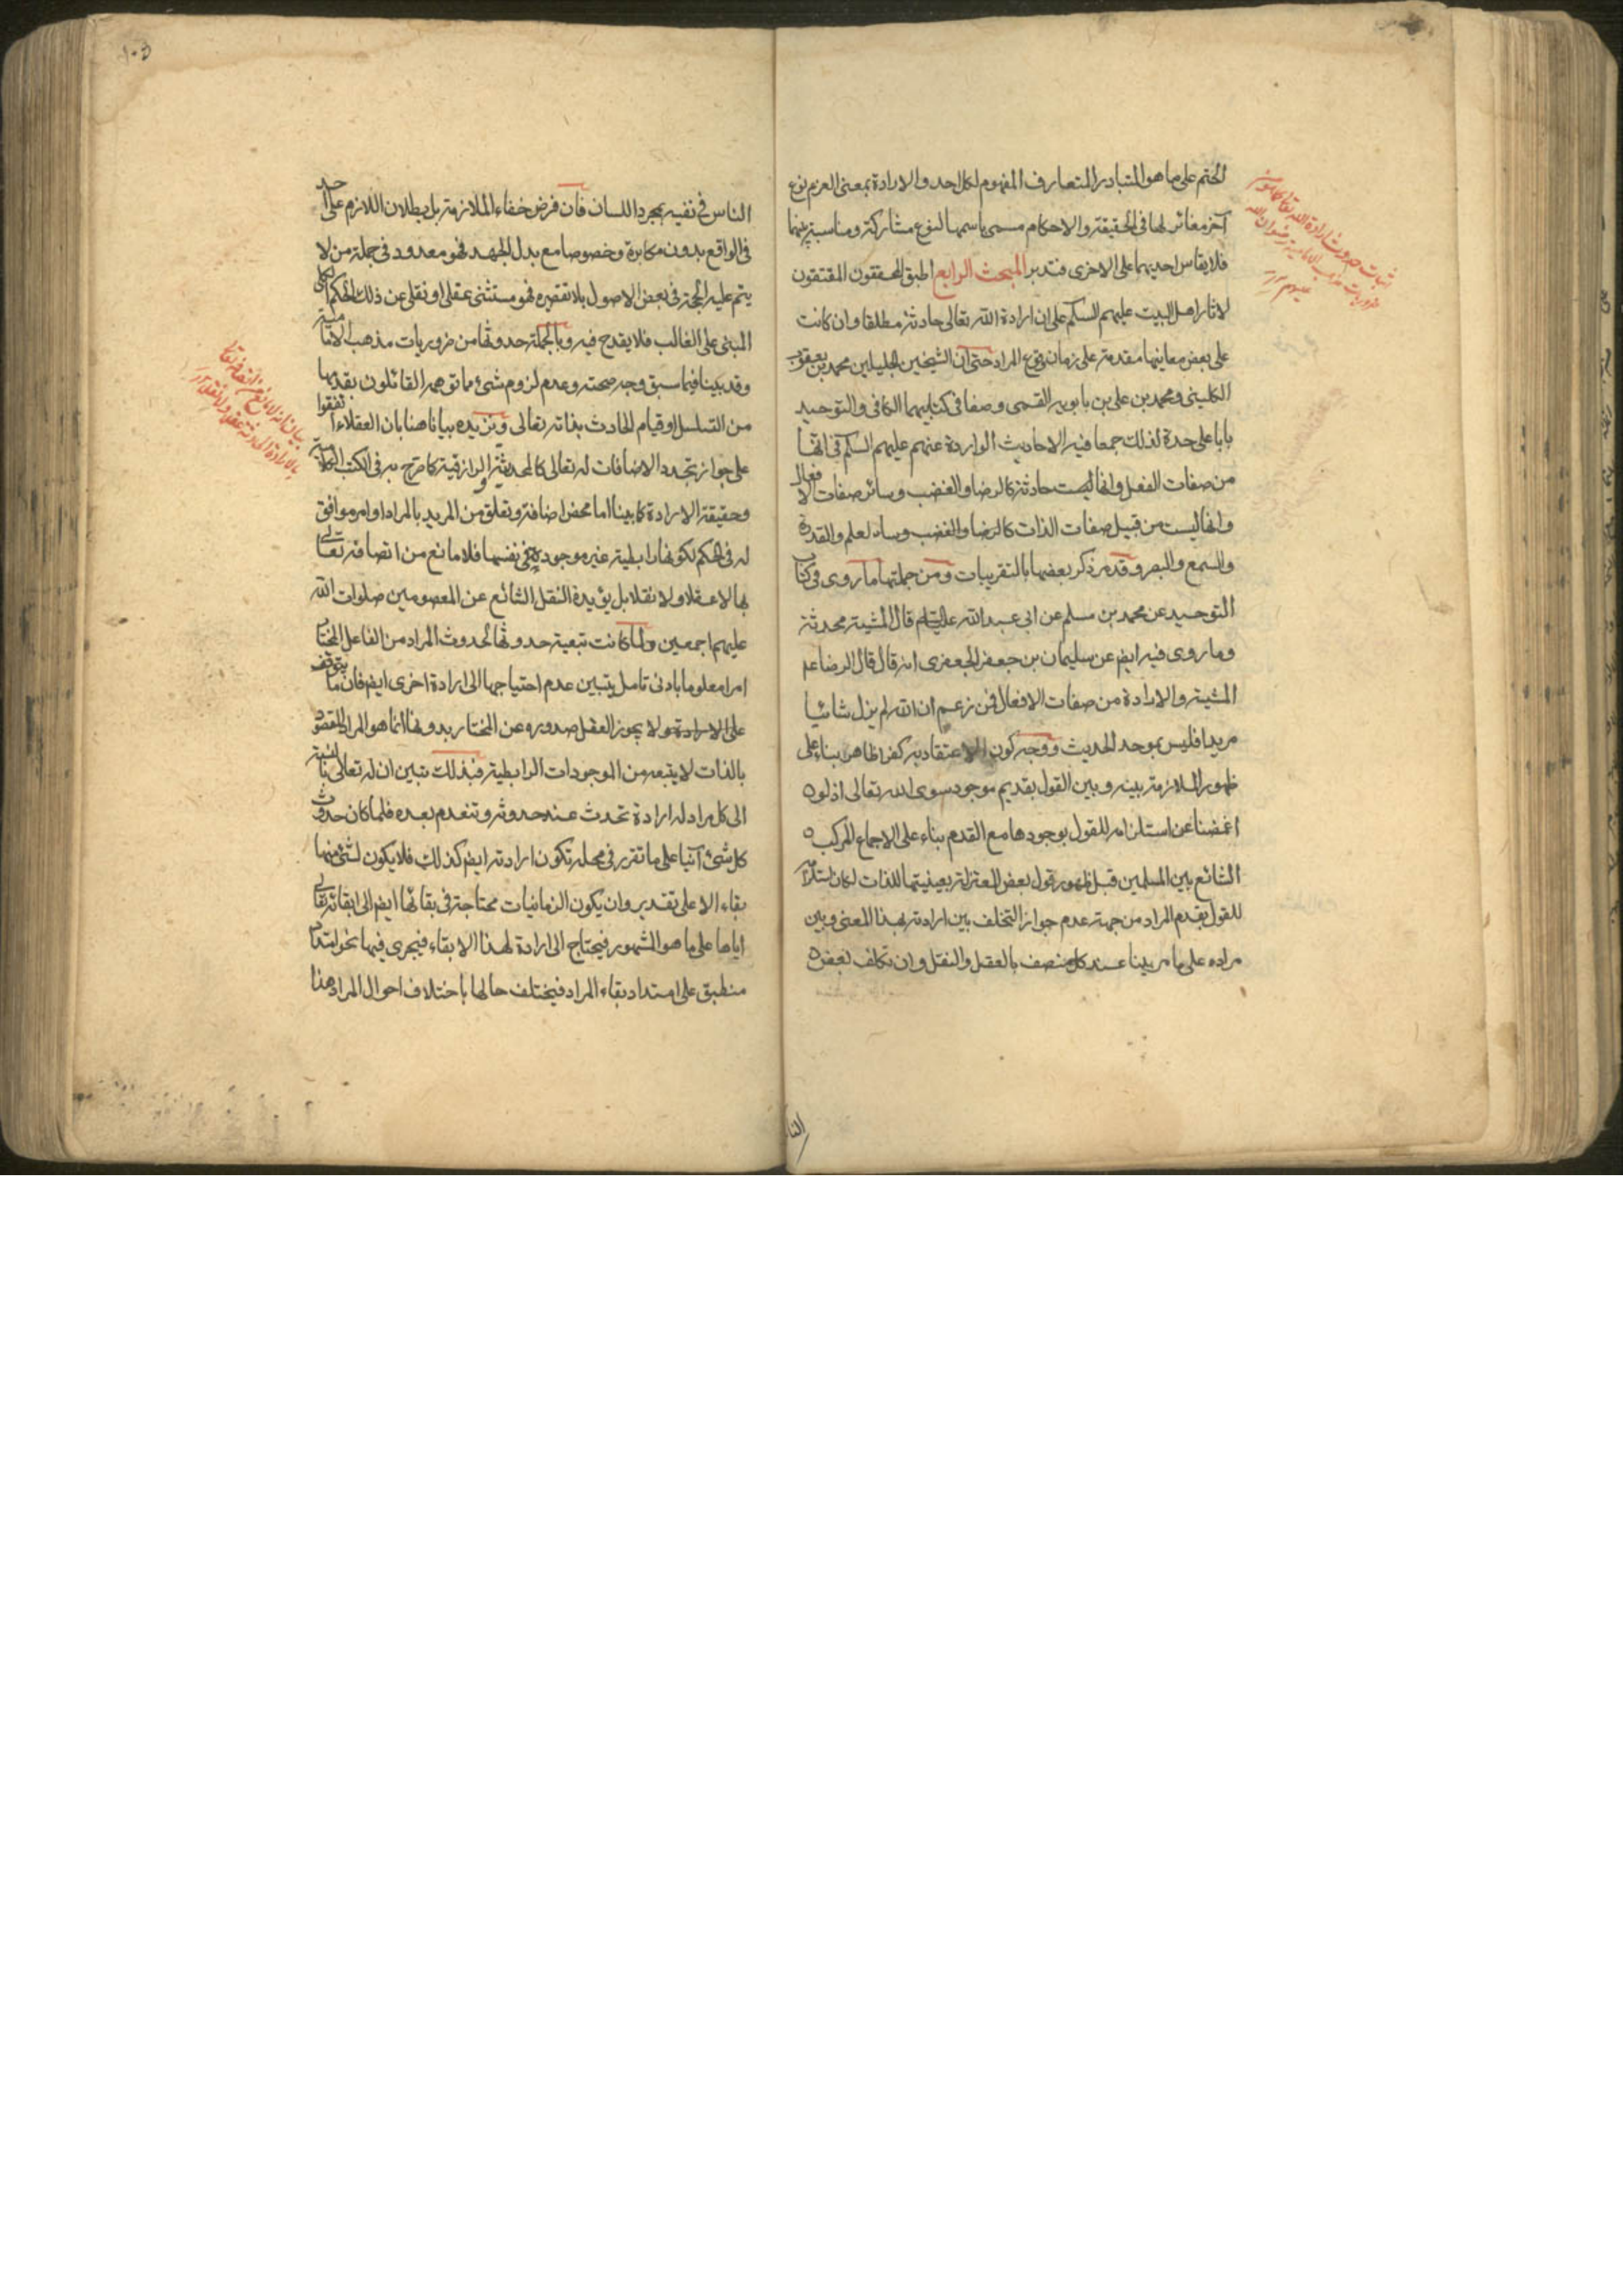 الختم على ما هو المتبادر المتعارف المفهوم لكل احد والارادة بمعنى العزم نوع
آخر مغائر لها فى الحقيقة والاحكام مسمى باسمها لنوع مشاركة ومناسبة بينهما
فلا يقاس احديهما على الاخرى فتدبر المبحث الرابع اطبق المحققون المقتفون
لاثار اهل البيت عليهم السلم على ان ارادة الله تعالى حادثة مطلقا وان كانت
على بعض معانيها مقدمة على زمان وقوع المراد حتى ان الشيخين الجليلين محمد بن يعقوب
الكلينى ومحمد بن على بن بابويه القمى وصفا فى كتابيهما الكافى والتوحيد
بابا على حدة لذلك جمعا فيه الاحاديث الواردة عنهم عليهم السلم فى انها
من صفات الفعل وانها ليست حادثة كالرضا والغضب وسائر صفات الافعال
وانها ليست من قبيل صفات الذات كالرضا والغضب وساد لعلم والقدرة
والسمع والبصر وقد مر ذكر بعضها بالتقريبات ومن جملتها ما روى فى كتاب
التوحيد عن محمد بن مسلم عن ابى عبد الله عليه السلام قال المشية محدثة
وما روى فيه ايض عن سليمان بن جعفر الجعفرى انه قال قال الرضا عم
المشية والارادة من صفات الافعال فمن زعم ان الله لم يزل شائيا
مريدا فليس بموحد الحديث ووجه كون الاعتقاد به كفرا ظاهر بناء على
ظهور الملازمة بينه وبين القول بقديم موجود سوى الله تعالى اذ لو
اغمضنا عن استلزامه للقول بوجودها مع القدم بناء على الاجماع المركب
الشائع بين المسلمين قبل ظهور قول بعض المعتزلة بعينيتها للذات لكان استلزامه
للقول بقدم المراد من جهة عدم جواز التخلف بين ارادته بهذا المعنى وبين
مراده على ما مر بينا عند كل منصف بالعقل والنقل وان تكلف بعض
الناس فى نفيه بمجرد اللسان فان فرض خفاء الملازمة بل بطلان اللازم على احد
فى الواقع بدون مكابرة وخصوصا مع بذل الجهد فهو معدود فى جملة من لا
يتم عليه الحجة فى بعض الاصول بلا تقصيره فهو مستثنى عقلى او نقلى عن ذلك الحكم الكلى
المبنى على الغالب فلا يقدح فيه وبالجملة حدوثها من ضروريات مذهب الامامية
وقد بينا فيما سبق وجه صحته وعدم لزوم شئ مما توهمه القائلون بقدمها
من التسلسل او قيام الحادث بذاته تعالى ونزيده بيانا هنا بان العقلاء اتفقوا
على جواز تجدد الاضافات له تعالى كالمحدثية والرازقية كما صرح به فى الكتب الكلامية
وحقيقة الارادة كما بينا اما محض اضافة وتعلق من المريد بالمراد او امر موافق
له فى الحكم لكونها رابطية غير موجودة فى نفسها فلا مانع من اتصافه تعالى
بها لا عقلا ولا نقلا بل يؤيده النقل الشائع عن المعصومين صلوات الله
عليهم اجمعين ولما كانت تبعية حدوثها لحدوث المراد من الفاعل المختار
امرا معلوما بادنى تامل يتبين عدم احتياجها الى ارادة اخرى ايض فان ما يتوقف
على الارادة ولا يجوز العقل صدوره عن المختار بدونها انما هو المراد المقصود
بالذات لا يتبعه من الموجودات الرابطية فبذلك تبين ان له تعالى بالنسبة
الى كل مراد له ارادة تحدث عند حدوثه وتنعدم بعده فلما كان حدوث
كل شئ آنيا على ما تقرر فى محله تكون ارادته ايض كذلك فلا يكون لشئ منهما
بقاء الا على تقدير وان يكون الزمانيات محتاجة فى بقائها ايض الى ابقائه تعالى
اياها على ما هو المشهور فيحتاج الى ارادة لهذا الابقاء فيجرى فيها نحو امتداد
منطبق على امتداد بقاء المراد فيختلف حالها باختلاف احوال المراد هذا